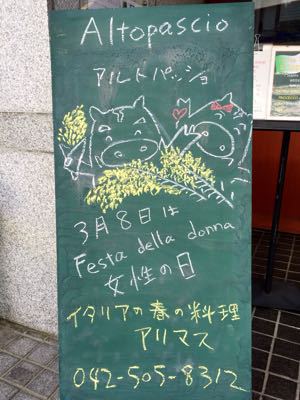 Altopascio
アルトパッショ
3月8日は
Festa della donna
女性の日
イタリアの春の料理
アリマス
042-505-8312